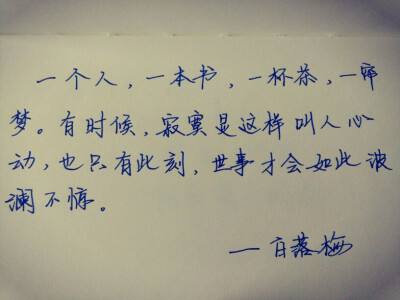 一个人，一本书，一杯茶，一帘
梦。有时候，寂寞是这样叫人心
动，也只有此刻，世事才会如此波
澜不惊。
—白落梅